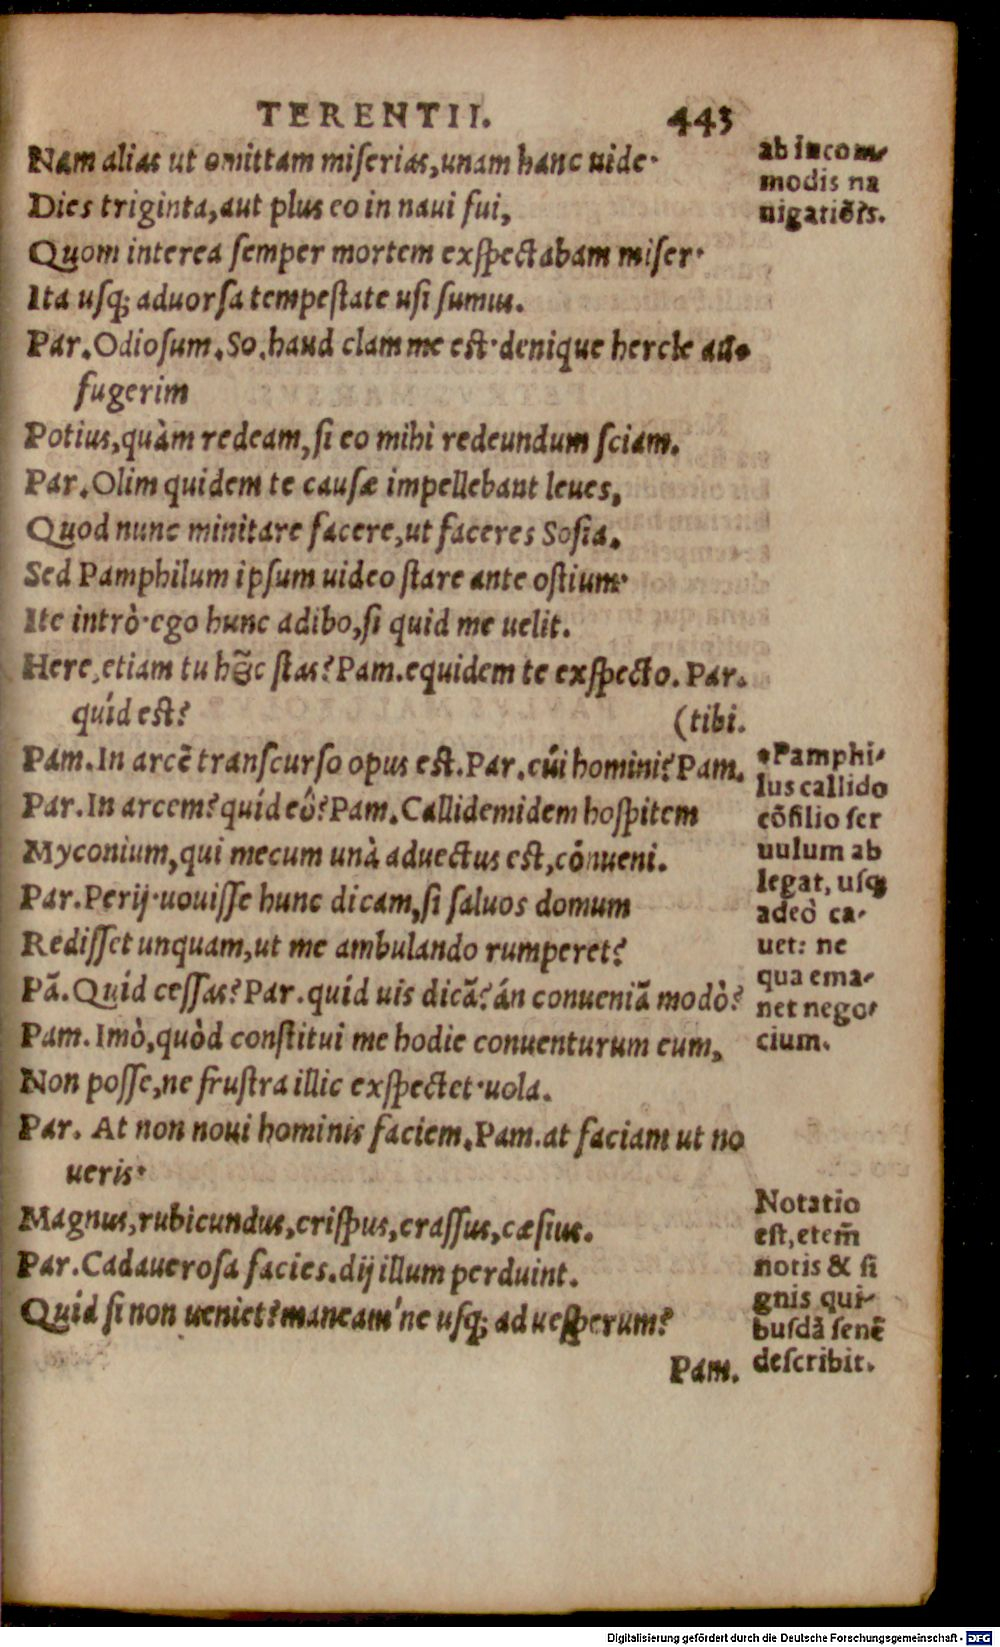 TERENTII. 443
Nam alias ut omittam miſerias,unam hanc uide·
Dies triginta,aut plus eo in naui fui,
Quom interea ſemper mortem exſpectabam miſer·
Ita uſq; aduorſa tempeſtate uſi ſumus.
Par.Odioſum.So.haud clam me eſt·denique hercle au-
fugerim
Potius,quàm redeam,ſi eo mihi redeundum ſciam.
Par.Olim quidem te cauſæ impellebant leues,
Quod nunc minitare facere,ut faceres Soſia.
Sed Pamphilum ipſum uideo ſtare ante oſtium·
Ite intrò·ego hunc adibo,ſi quid me uelit.
Here,etiam tu hîc ſtas?Pam.equidem te exſpecto. Par.
quíd eſt? (tibi.
Pam.In arcē tranſcurſo opus eſt.Par.cúi homini?Pam.
Par.In arcem?quíd eô?Pam.Callidemidem hoſpitem
Myconium,qui mecum unà aduectus eſt,cōnueni.
Par.Perij·uouiſſe hunc dicam,ſi ſaluos domum
Rediſſet unquam,ut me ambulando rumperet?
Pā.Quíd ceſſas?Par.quíd uis dicā?án conueniā modò?
Pam.Imò,quòd conſtitui me hodie conuenturum eum,
Non poſſe,ne fruſtra illic exſpectet·uola.
Par. At non noui hominis faciem.Pam.at faciam ut no
ueris·
Magnus,rubicundus,criſpus,craſſus,cæſius.
Par.Cadaueroſa facies.dij illum perduint.
Quíd ſi non ueniet?maneam'ne uſq; ad ueſperum?
Pam.
ab incom-
modis na
uigatiōis.
•Pamphi-
lus callido
cōſilio ſer
uulum ab
legat, uſq;
adeò ca-
uet: ne
qua ema-
net nego-
cium.
Notatio
eſt,etem̄
notis & ſi
gnis qui-
buſdā ſenē
deſcribit.
Digitalisierung gefördert durch die Deutsche Forschungsgemeinschaft - DFG